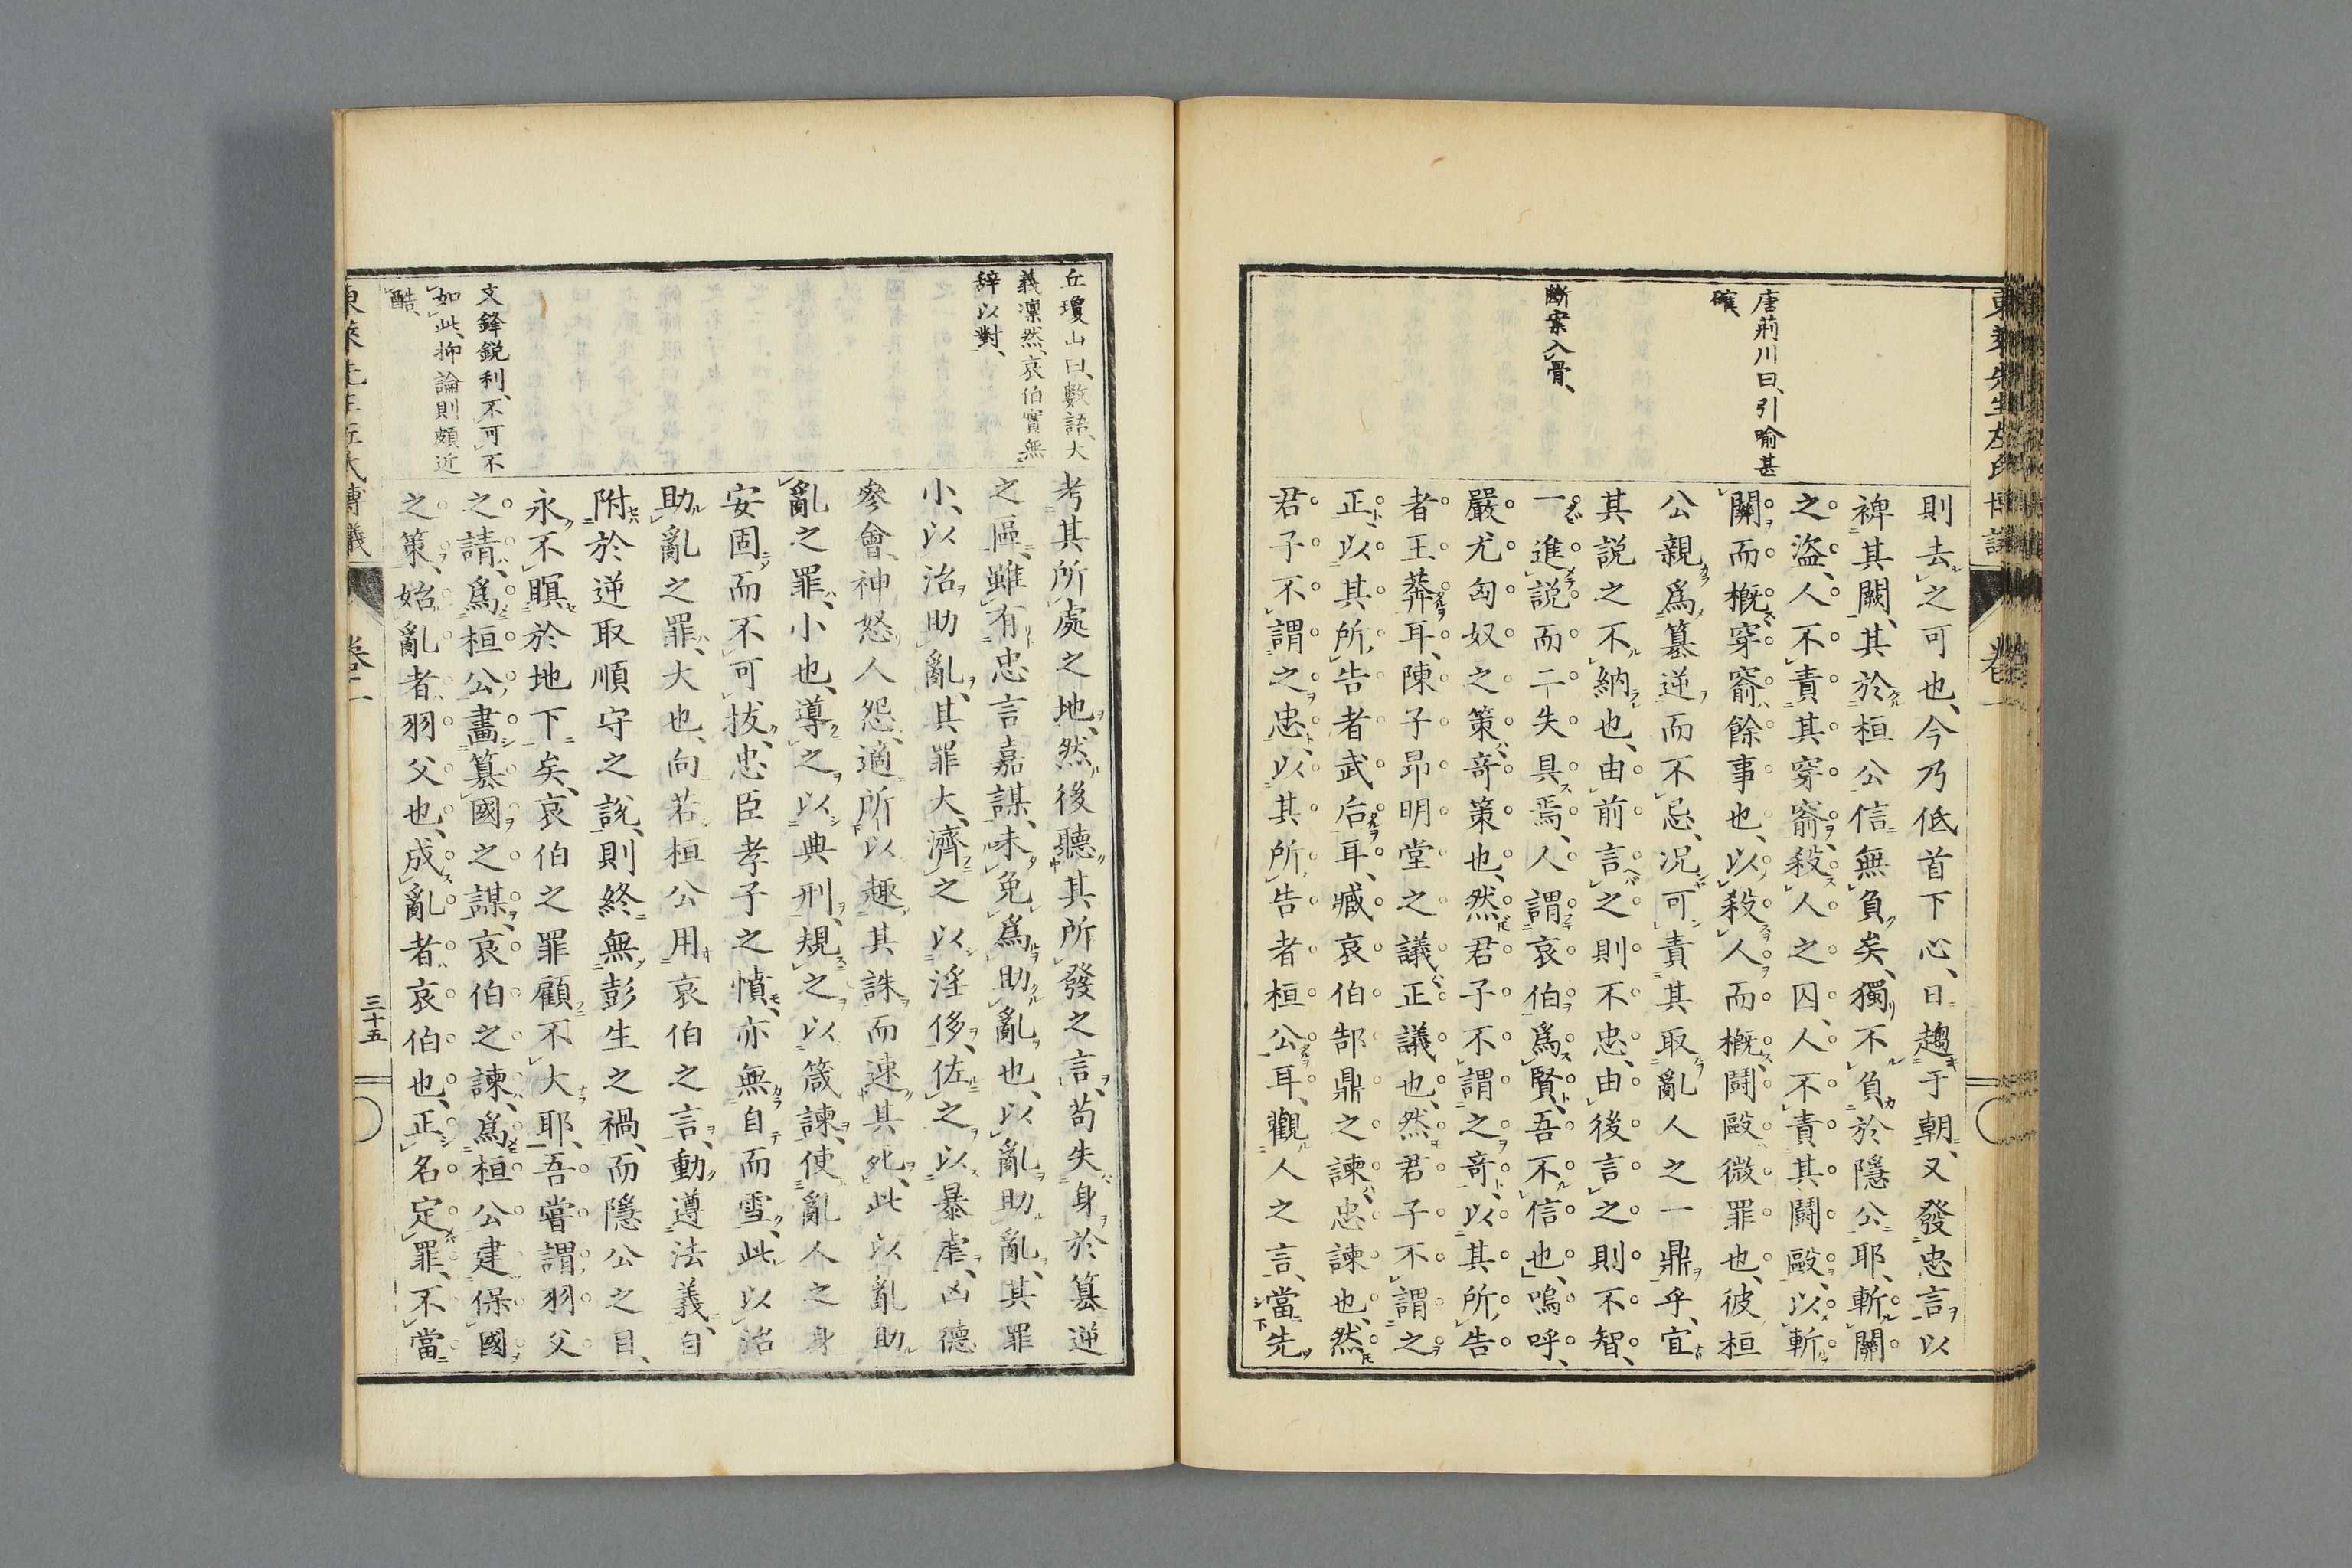 則去之可也、今乃低首下心、日趨于朝、又發忠言以
裨其闕、其於桓公信無負矣、獨不負於隱公耶、斬關
之盜、人不責其穿窬、殺人之囚、人不責其鬪毆、以斬
關而概穿窬餘事也、以殺人而概鬪毆微罪也、彼桓
公親爲篡逆而不忌、况可責其取亂人之一鼎乎、宜
其説之不納也、由前言之則不忠、由後言之則不智、
一進説而二失具焉、人謂哀伯爲賢、吾不信也、嗚呼、
嚴尤匈奴之策奇策也、然君子不謂之奇、以其所告
者王莽耳、陳子昂明堂之議正議也、然君子不謂之
正、以其所告者武后耳、臧哀伯郜鼎之諫忠諫也、然
君子不謂之忠、以其所告者桓公耳、觀人之言、當先
唐荊川曰、引喩甚
確、
斷案入骨、
考其所處之地、然後聽其所發之言、苟失身於篡逆
之區、雖有忠言嘉謀、未免爲助亂也、以亂助亂、其罪
小、以治助亂、其罪大、濟之以淫侈、佐之以暴虐、凶德
參會、神怒人怨、適所以趣其誅而速其死、此以亂助
亂之罪、小也、導之以典刑、規之以箴諫、使亂人之身
安固而不可拔、忠臣孝子之憤、亦無自而雪、此以治
助亂之罪、大也、向若桓公用哀伯之言、動遵法義、自
附於逆取順守之説、則終無彭生之禍、而隱公之目、
永不瞑於地下矣、哀伯之罪顧不大耶、吾嘗謂羽父
之請、爲桓公畫篡國之謀、哀伯之諫、爲桓公建保國
之策、始亂者羽父也、成亂者哀伯也、正名定罪、不當
丘瓊山曰、數語、大
義凛然、哀伯實無
辞以對、
文鋒鋭利、不可不
如此、抑論則頗近
酷、
卷二
三十五